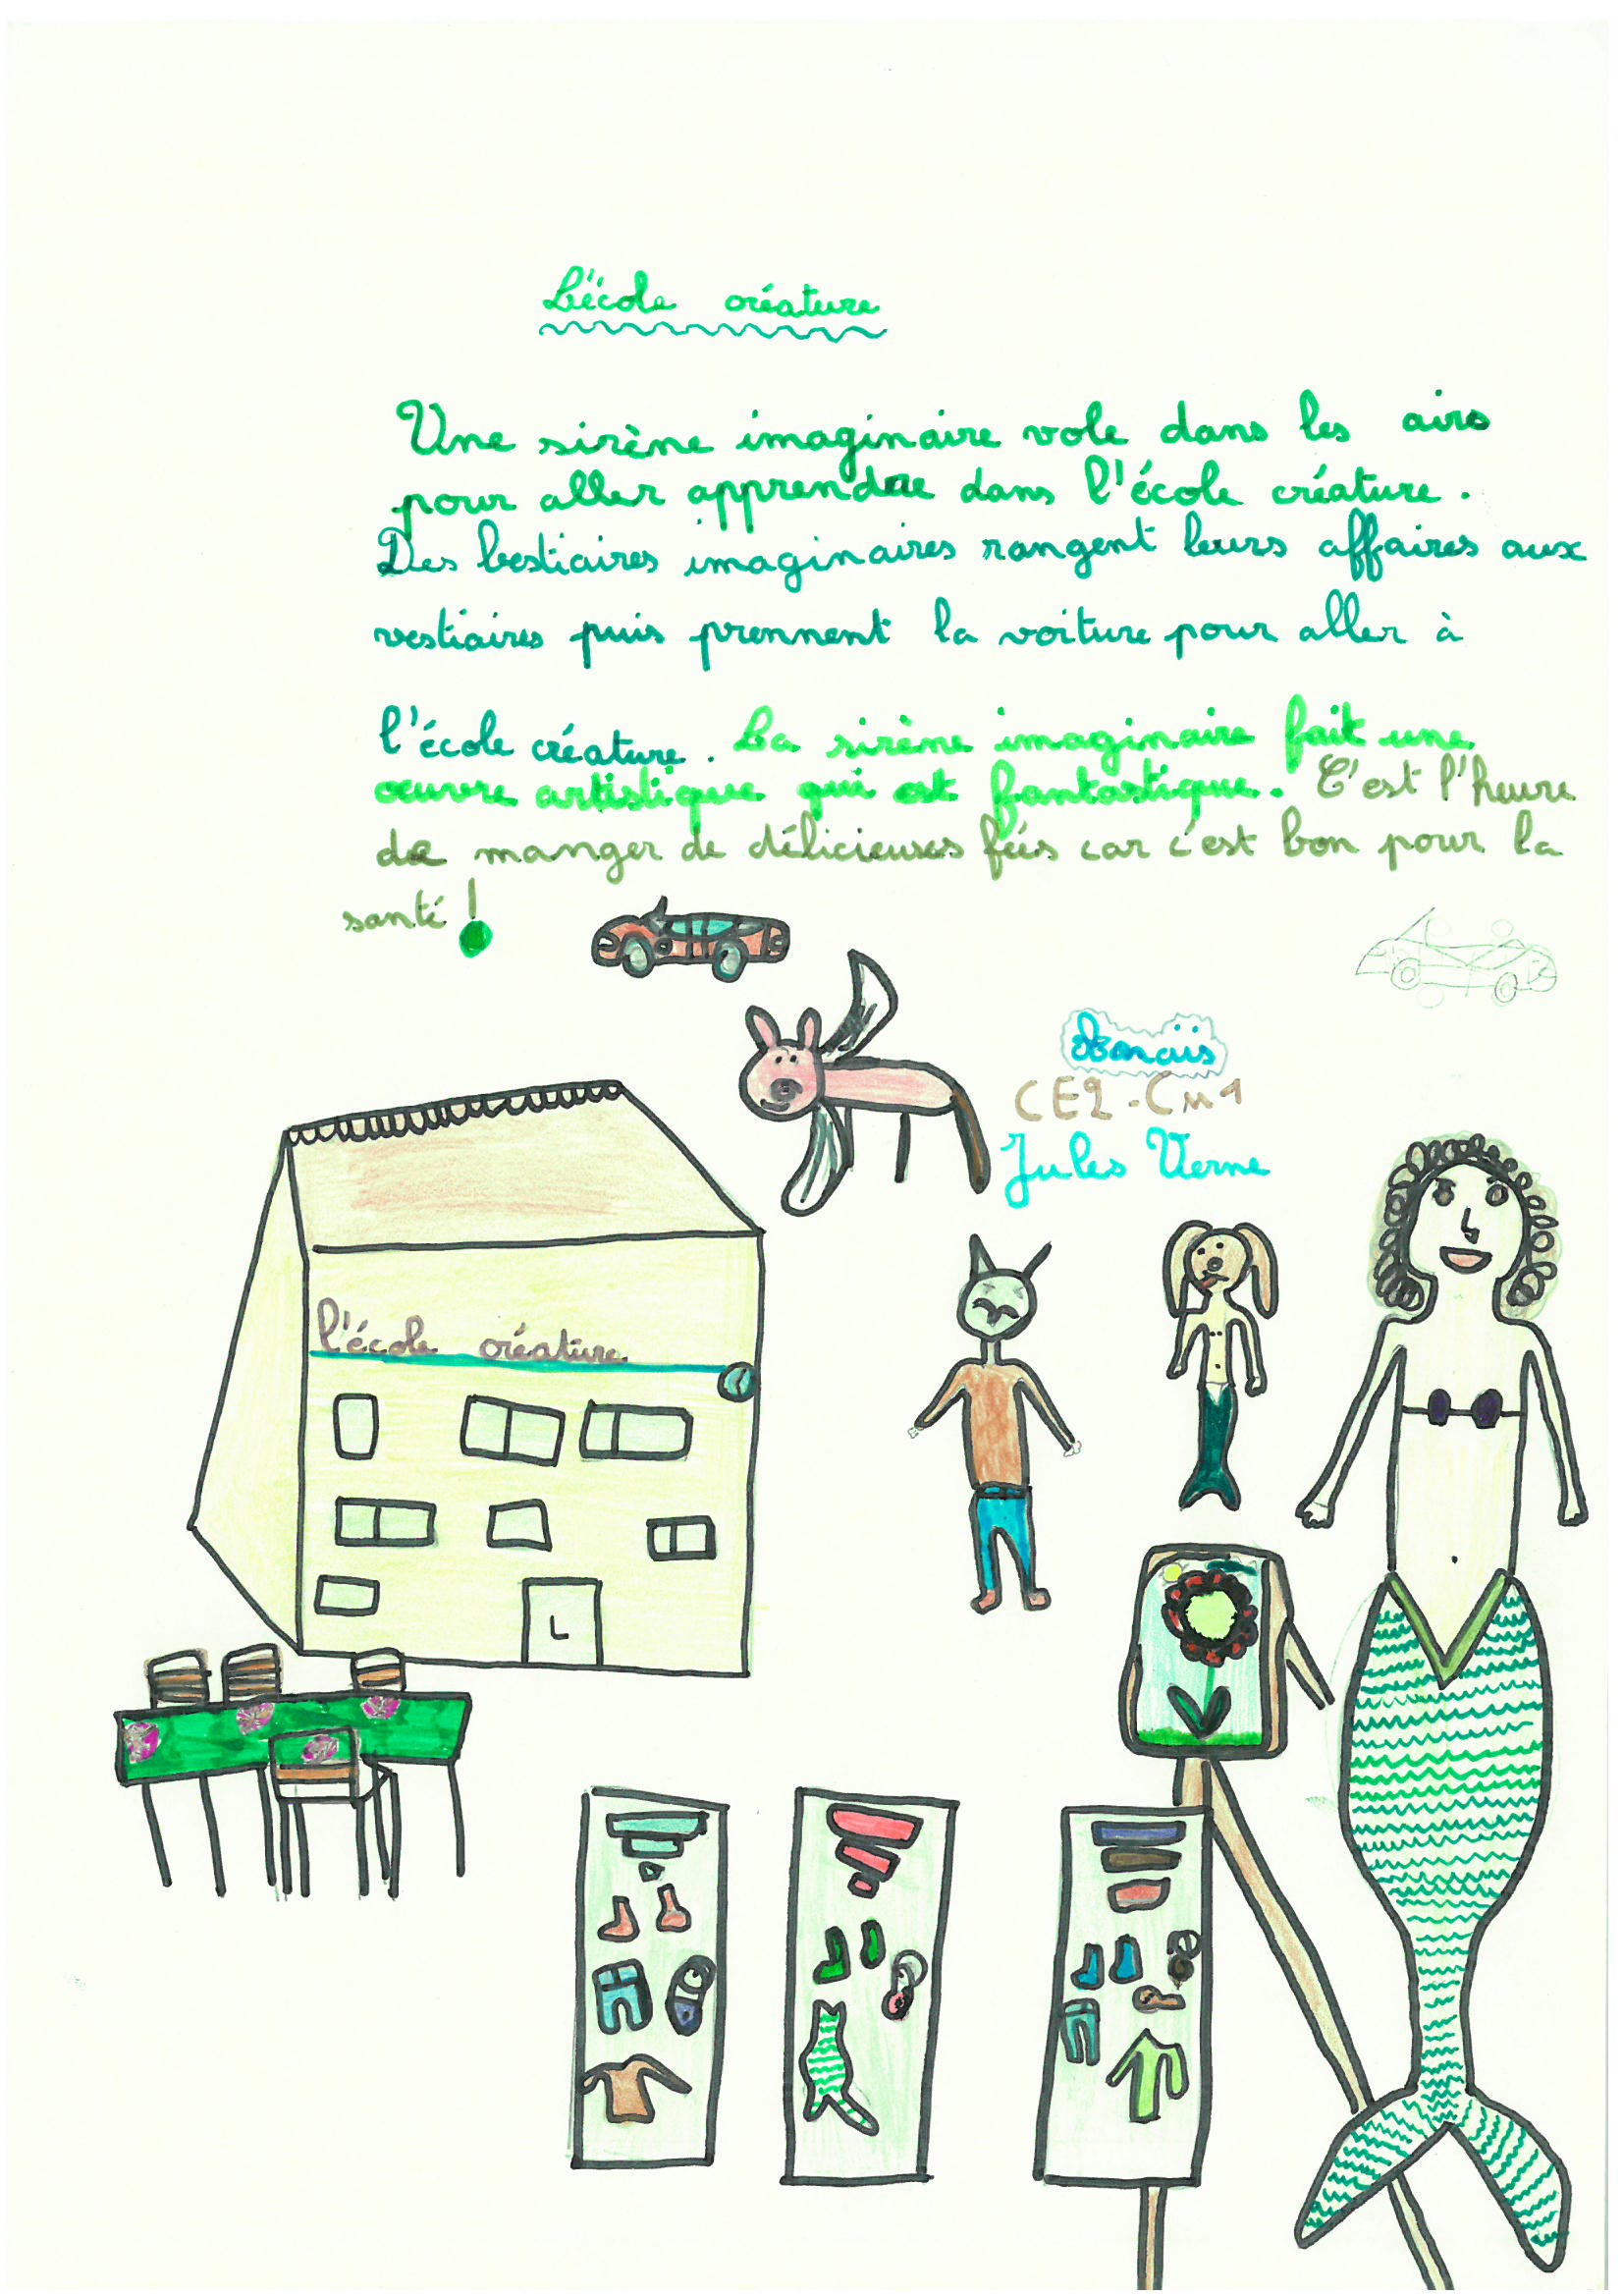 L'école créature
Une sirène imaginaire vole dans les airs
pour aller apprendre dans l'école créature.
Des bestiaires imaginaires rangent leurs affaires aux
vestiaires puis prennent la voiture pour aller à
l'école créature. La sirène imaginaire fait une
œuvre artistique qui est fantastique. C'est l'heure
de manger de délicieuses fées car c'est bon pour la
santé !
Anaïs
CE2-CM1
Jules Verne
l'école créature